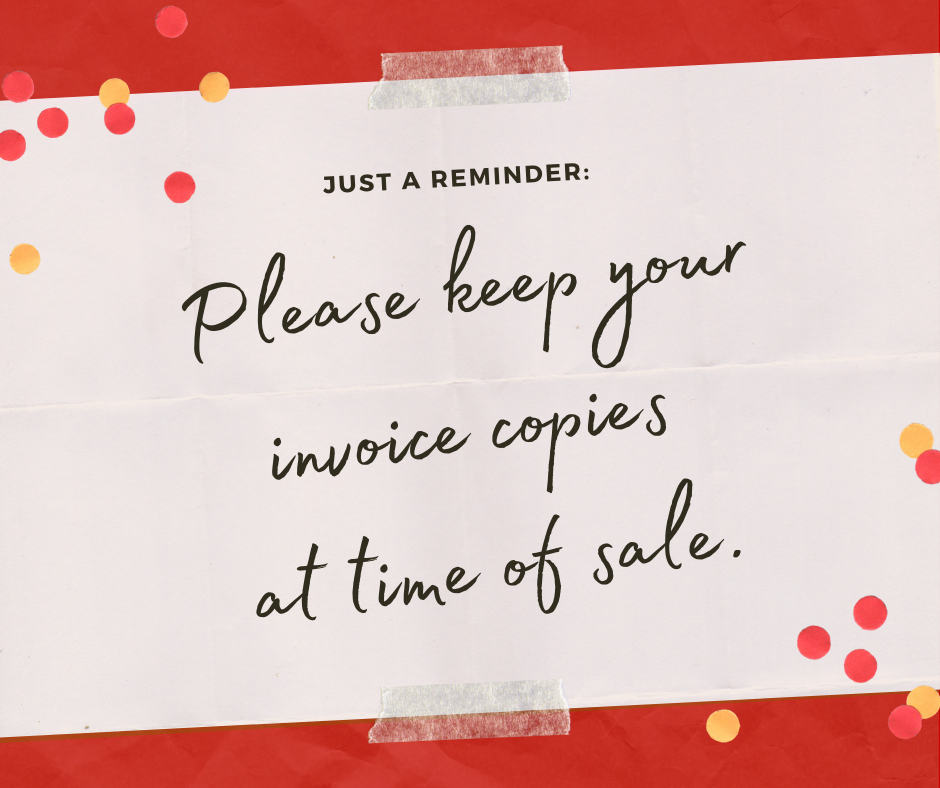 JUST A REMINDER:
Please keep your
invoice copies
at time of sale.